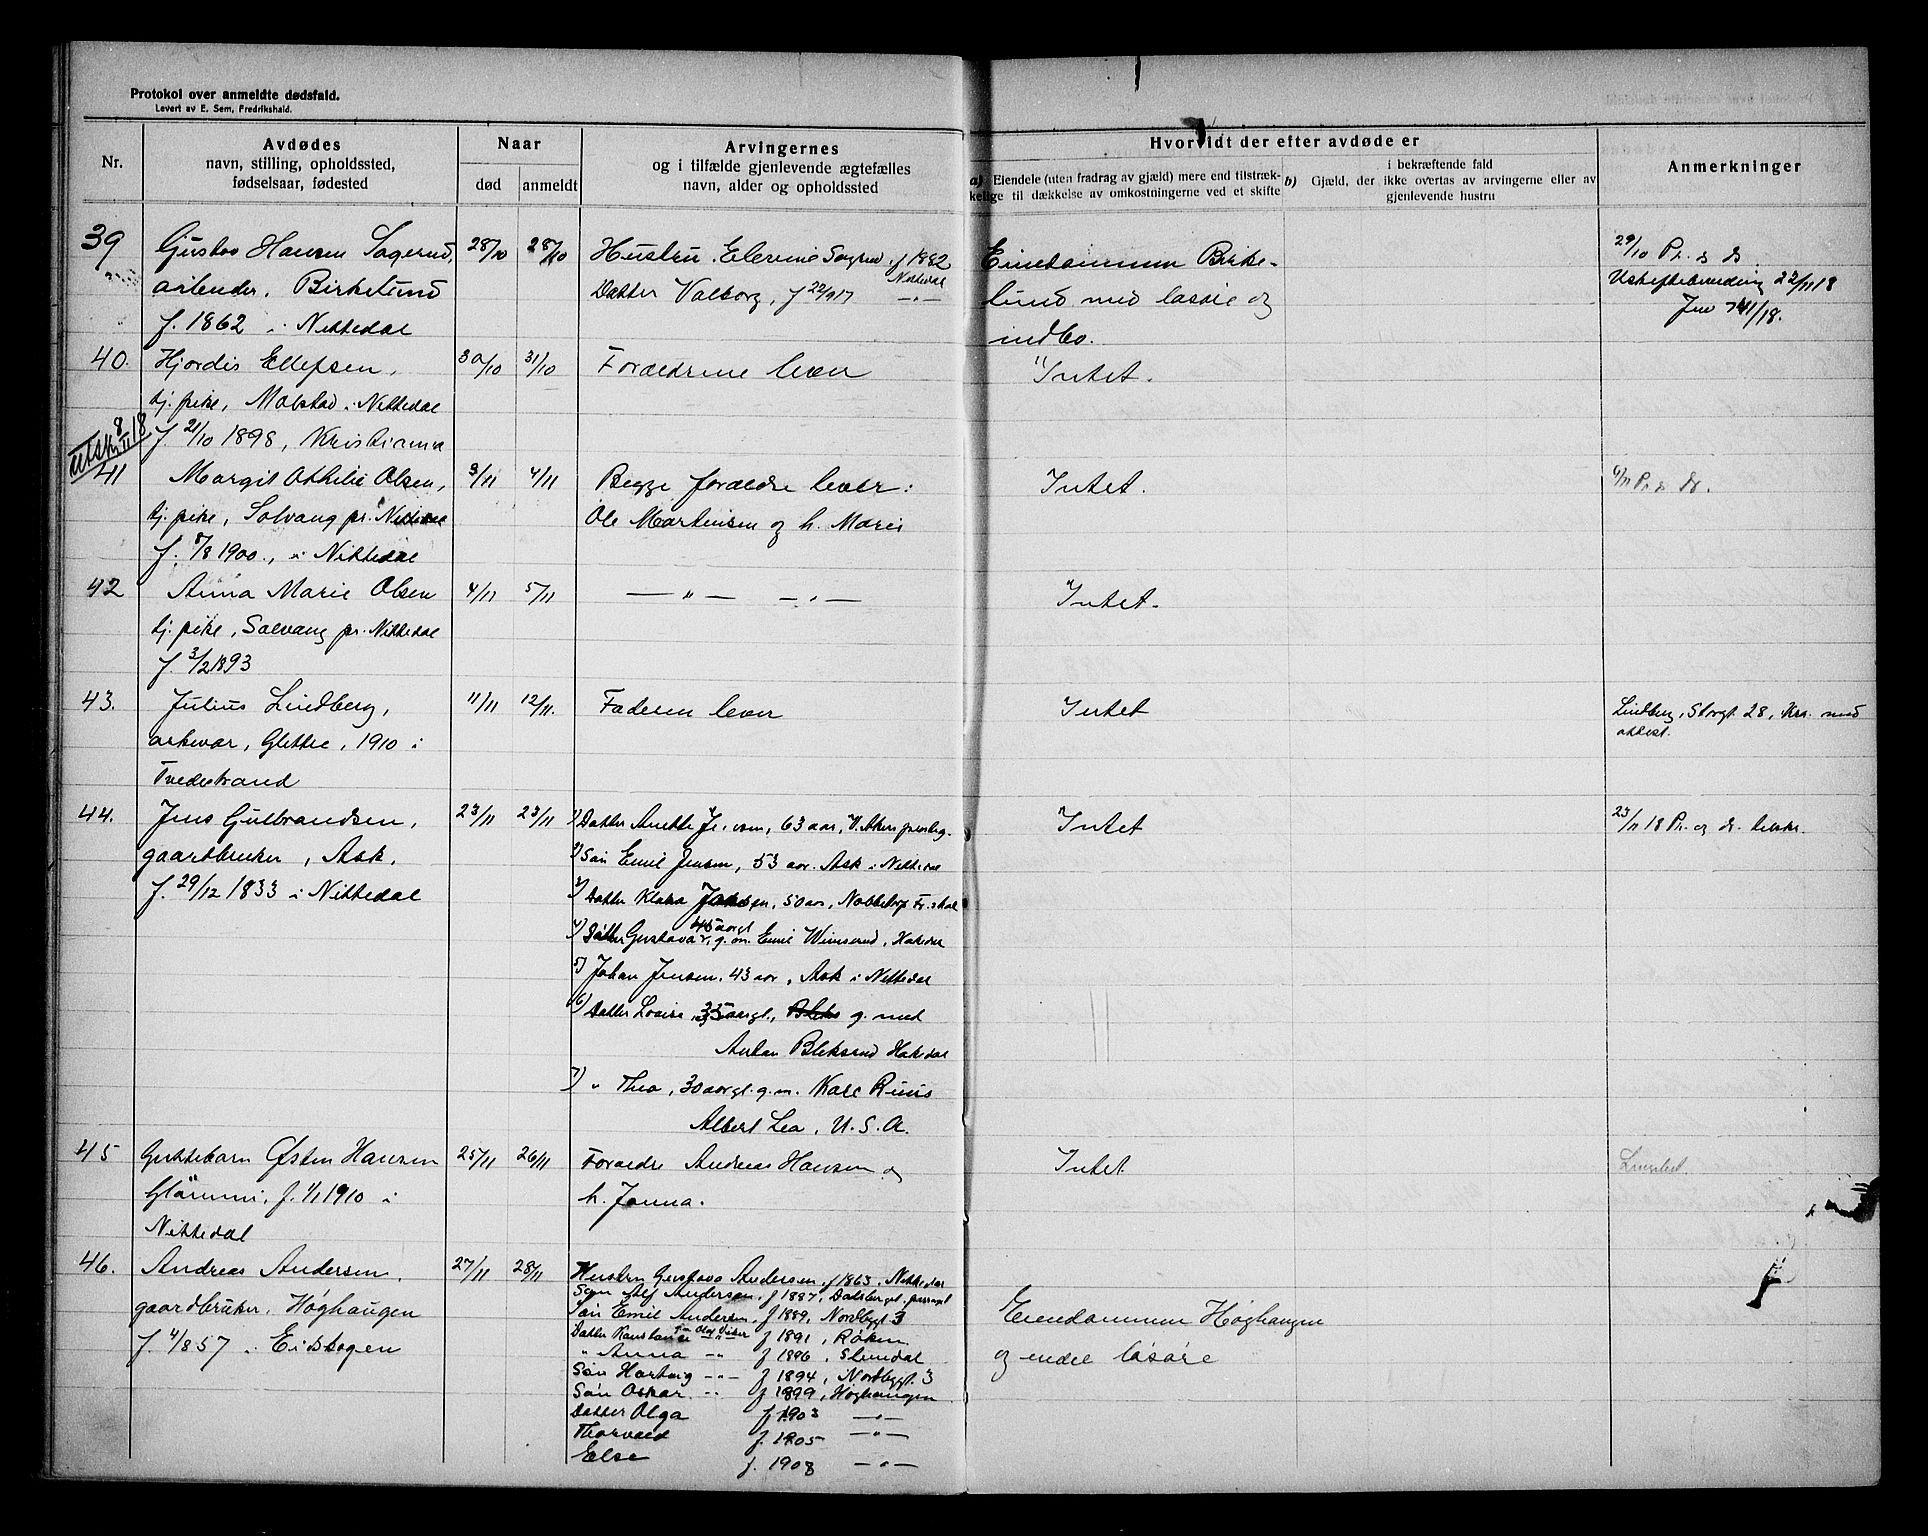 Protokol over anmeldte dødsfald.
Levert av E. Sem, Fredrikshald.
Nr.
Avdødes
navn, stilling, opholdssted,
fødselsaar, fødested
Naar
død
anmeldt
Arvingernes
og i tilfælde gjenlevende ægtefælles
navn, alder og opholdssted
Hvorvidt der efter avdøde er
a) Eiendele (uten fradrag av gjæld) mere end tilstræk-
kelige til dækkelse av omkostningerne ved et skifte
i bekræftende fald
b) Gjæld, der ikke overtas av arvingerne eller av
gjenlevende hustru
Anmerkninger
39
Gustav Hansen Sagerud,
arbeider, Birkelund
f. 1862 i Nittedal
28/10 28/10
Hustru f 1882
Nittedal
Datter Valborg, f 22/9 17 —„—
Eiendommen Birke-
lund med løsøre og
indbo.
29/10 Pr. & dr.
22/11 18
40.
Hjordis Ellefsen,
tj. pike, Molstad i Nittedal
f 21/10 1898, Kristiania
30/10 31/10
Forældrene lever
Intet.
Utskr. 8/11 18
41
Margit Othilie Olsen,
tj. pike, Solvang pr. Nittedal
f. 7/8 1900., i Nittedal
3/11 4/11
Begge forældre lever:
Ole Martinsen og h. Marie
Intet.
6/11 Pr. & dr.
42
Anna Marie Olsen
tj. pike, Solvang pr. Nittedal
f. 3/2 1893
4/11 5/11
— „ — — „ —
Intet.
43.
Julius Lindberg,
Glittre, 1910 i
Tvedestrand
11/11 12/11.
Faderen lever
Intet
Lindberg, Storgt 28, Kra. med
attest.
44.
Jens Gulbrandsen,
gaardbruker, Ask,
f. 29/12 1833 i Nittedal
23/11 23/11
1) Datter Anette 63 aar, V. Aker
2) Søn Emil Jensen, 53 aar. Ask i Nittedal
3) Datter Klara 50 aar,
4) Datter Gustava, 45 aargl. g. m. Emil Hakedal
5) Johan Jensen, 43 aar, Ask i Nittedal
6) Datter Lovise, 35 aargl., g. med
Anton Hakedal
7) „ Thea, 30 aargl. g. m. Karl Ruus
Albert Lea, U.S.A.
Intet
23/11 18 Pr. og dr.
45
Guttebarn Østen Hansen
f. 1/1 1910 i
Nittedal
25/11 26/11
Forældre Andreas Hansen og
h. Janna.
Intet
46.
Andreas Andersen,
gaardbruker, Høghaugen
f 4/8 57 i Eidskogen
27/11 28/11
Hustru Gustava Andersen f 1863, Nittedal
Søn Alf Andersen, f 1887,
Søn Emil Andersen, f 1889, Nordbygt 3
Datter f 1891, Røken
„ Anna —„— f 1896,
Søn Hartvig —„— f 1894, Nordbygt. 3
Søn Oskar —„— f 1899, Høghaugen
Datter Olga f 1903 —„—
Thorvald f. 1905 —„—
Else f. 1908 —„—
Eiendommen Høghaugen
og endel løsøre